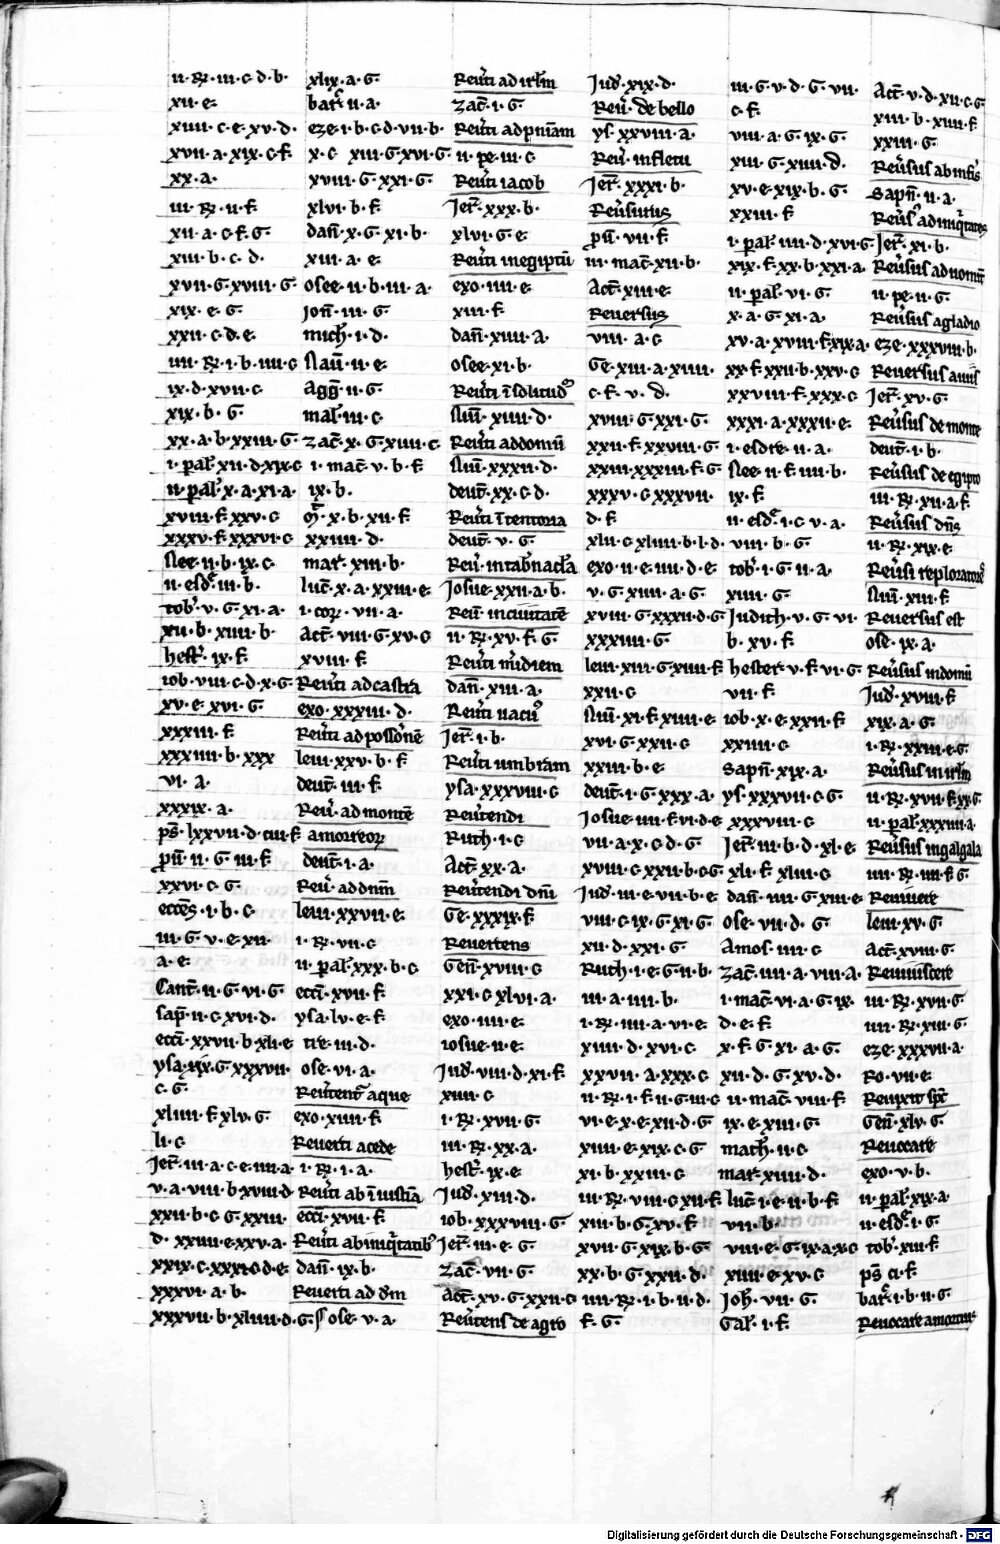 ii · R · iii · c · d · b ·
xii · e ·
xiiii · c · e · xv · d ·
xvii · a · xix · c · f ·
xx · a ·
iii · R · ii · f ·
xii · a · c · f · G ·
xiii · b · c · d ·
xvii · G · xviii · G
xix · e · G ·
xxii · c · d · e ·
iiii · R · i · b · iiii · c
ix · d · xvii · c
xix · b · G ·
xx · a · b · xxiii · G
i · paral · xii · d · xix · c
ii · paral · x · a · xi · a ·
xviii · f · xxv · c
xxxv · f · xxxvi · c
Nee · ii · b · ix · c ·
ii · esd · iii · b ·
tob · v · G · xi · a ·
xii · b · xiiii · b ·
hest · ix · f ·
iob · viii · c · d · x · G
xv · e · xvi · G ·
xxxiii · f ·
xxxiiii · b · xxx
vi · a ·
xxxix · a ·
ps · lxxvii · d · ciii · f
pu · ii · G · iii · f
xxvi · c · G ·
ecces · i · b · c
iii · G · v · e · xii ·
a · e ·
Cant · ii · G · vi · G
sap · ii · c · xvi · d ·
ecci · xxvii · b · xli · e
c · G ·
xliiii · f · xlv · G
li · c
Jer · iii · a · c · e · iiii · a
v · a · viii · b · xviii · d
xxii · b · c · G · xxiii ·
d · xxiiii · e · xxv · a ·
xxxvi · a · b ·
xlix · a · G ·
bar · ii · a ·
eze · i · b · c · d · vii · b ·
x · c · xiii · G · xvi · G
xviii · G · xxi · G ·
xlvi · b · f ·
dan · x · G · xi · b ·
xiii · a · e ·
osee · ii · b · iii · a ·
Jon · iii · G
mich · i · d ·
Nau · ii · e ·
Agg · ii · G ·
mal · iii · c
zac · x · G · xiiii · c
i · mac · v · b · f
ix · b ·
xxiiii · d ·
mat · xiii · b ·
luc · x · a · xxiii · e
i · cor · vii · a ·
Act · viii · G · xv · G
xviii · f ·
Reuti ad castra
exo · xxxiii · d ·
leui · xxv · b · f
deut · iii · f
Reu · ad monte
amorreor
deut · i · a ·
Reu · ad dnm
leui · xxvii · e ·
i · R · vii · c
ii · paral · xxx · b · c
ecci · xvii · f
ysa · lv · e · f
tre · iii · d ·
ose · vi · a ·
Reutent aque
exo · xiiii · f
Reuerti a cede
i · R · i · a ·
Reuti ab iiustia
ecci · xvii · f
dan · ix · b ·
Reuerti ad dm
ose · v · a ·
Reuti ad irlm
zac · i · G
Reuti ad pniam
ii · pe · iii · c
Reuti iacob
Jer · xxx · b ·
xlvi · G · e
Reuti in egiptu
exo · iiii · e ·
xiii · f
dan · xiiii · a ·
osee · xi · b ·
Reuti i solitud
Nu · xiiii · d ·
Reuti ad domu
Nu · xxxii · d ·
deut · xx · c · d ·
Reuti i tentoria
deut · v · G
Reu · in tabnacla
Josue · xxii · a · b ·
Reu · in ciuitate
ii · R · xv · f · G
Reuti meridiem
dan · xiii · a ·
Reuti uacu
Jer · i · b ·
Reuti umbram
ysa · xxxviii · G
Reutendi
Ruth · i · c
Act · xx · a ·
Reutendi dni
Ge · xxxix · f
Reuertens
Gen · xviii · c
xxi · c · xlvi · a ·
exo · iiii · e ·
iosue · ii · e ·
Jud · viii · d · xi · f
xiii · c
i · R · xvii · G
iii · R · xx · a ·
hest · ix · e
Jud · xiii · d ·
iob · xxxviii · G
Jer · iii · e · G
zac · vii · G
Act · xv · G · xxii · c
Reutens de agro
Jud · xix · d ·
Reu · de bello
ys · xxviii · a ·
Reu · in fletu
Jer · xxxi · b ·
Reusurus
pu · vii · f
iii · mac · xii · b ·
Act · xiii · e
Reuersus
viii · a · c
Ge · xiii · a · xiiii ·
c · f · v · d ·
xviii · G · xxi · G ·
xxii · f · xxviii · G
xxiii · xxxiii · f · G
xxxv · c · xxxvii ·
d · f
exo · ii · e · iiii · d · e
v · G · xiiii · a · G ·
xviii · G · xxxii · d · G
xxxiiii · G
leui · xiii · G · xiiii · f
xxii · c
Nu · xi · f · xiiii · e
xvi · G · xxii · c
xxiii · b · e
deut · i · G · xxx · a
Josue · iiii · f · vi · d · e
vii · a · x · c · d · G
xviii · c · xxii · b · c · G
Jud · iii · e · vii · b · e
viii · c · ix · G · xi · G
xii · d · xxi · G
Ruth · i · e · G · ii · b ·
iii · a · iiii · b ·
i · R · iiii · a · vi · e
xiiii · d · xvi · c
xxvii · a · xxx · c
ii · R · i · f · ii · G · iii · c
vi · e · x · e · xii · d · G
xiiii · e · xix · c · G
xi · b · xxiii · G
iii · R · viii · c · xii · f
xiii · b · G · xv · f
xvii · G · xix · b · G
xx · b · G · xxii · d ·
iiii · R · i · b · ii · d ·
f · G ·
iii · G · v · d · G · vii ·
c · f ·
viii · a · G · ix · G ·
xiii · G · xiiii · d ·
xv · e · xix · b · G
xxiii · f
i · paral · iiii · d · xvi · G
xix · f · xx · b · xxi · a ·
ii · paral · vi · G ·
x · a · G · xi · a ·
xv · a · xviii · f · xix · a ·
xx · f · xxii · b · xxv · c
xxviii · f · xxx · c
xxxi · a · xxxii · e ·
i · esdre · ii · a ·
Nee · ii · f · iiii · b ·
ix · f
ii · esd · i · c · v · a ·
viii · b · G
tob · i · G · ii · a ·
xiiii · G
Judith · v · G · vi ·
b · xv · f
hester · v · f · vi · G
vii · f
iob · x · e · xxii · f
xxiiii · c
Sapn · xix · a ·
ys · xxxvii · c · G
xxxviii · c
Jer · iii · b · d · xl · e
xli · f · xliii · c
dan · iiii · G · xiii · e
ose · vii · d · G
Amos · iiii · c
zac · iiii · a · viii · a ·
i · mac · vi · a · G · ix ·
d · e · f
x · f · G · xi · a · G ·
xii · d · G · xv · d ·
ii · mac · viii · f
ix · e · xiii · G
math · ii · c
mar · xiiii · d ·
luc · i · e · ii · b · f
vii · b ·
viii · e · G · ix · a · x · c
xiiii · e · xv · c
Joh · vii · G
Gal · i · f
Act · v · d · xii · c · G
xiii · b · xiiii · f
xxiii · G
Reusus ab infis
Sapn · ii · a ·
Jer · xi · b ·
ii · pe · ii · G
Reusus a gladio
eze · xxxviii · b ·
Reuersus auus
Jer · xv · G
Reusus de monte
deut · i · b ·
Reusus de egipto
iii · R · xii · a · f
Reusus dns
ii · R · xix · e
Nu · xiii · f
Reuersus est
ose · ix · a ·
Reusus in domu
Jud · xviii · f
xix · a · G
i · R · xxiii · e · G
Reusus in irlm
ii · R · xvii · f · xx · G
ii · paral · xxxiiii · a
Reusus in galgala
iiii · R · iiii · f · G
Reuiuere
leui · xv · G
Act · xviii · G
Reuiuiscere
iii · R · xvii · G
iiii · R · xiii · G
eze · xxxvii · a
Ro · vii · e
Reuixit spc
Gen · xlv · G
Reuocare
exo · v · b ·
ii · paral · xix · a
ii · esd · i · G
tob · xiii · f
ps · ci · f
bar · i · b · ii · G
Reuocare a mortuis
Digitalisierung gefördert durch die Deutsche Forschungsgemeinschaft - DFG